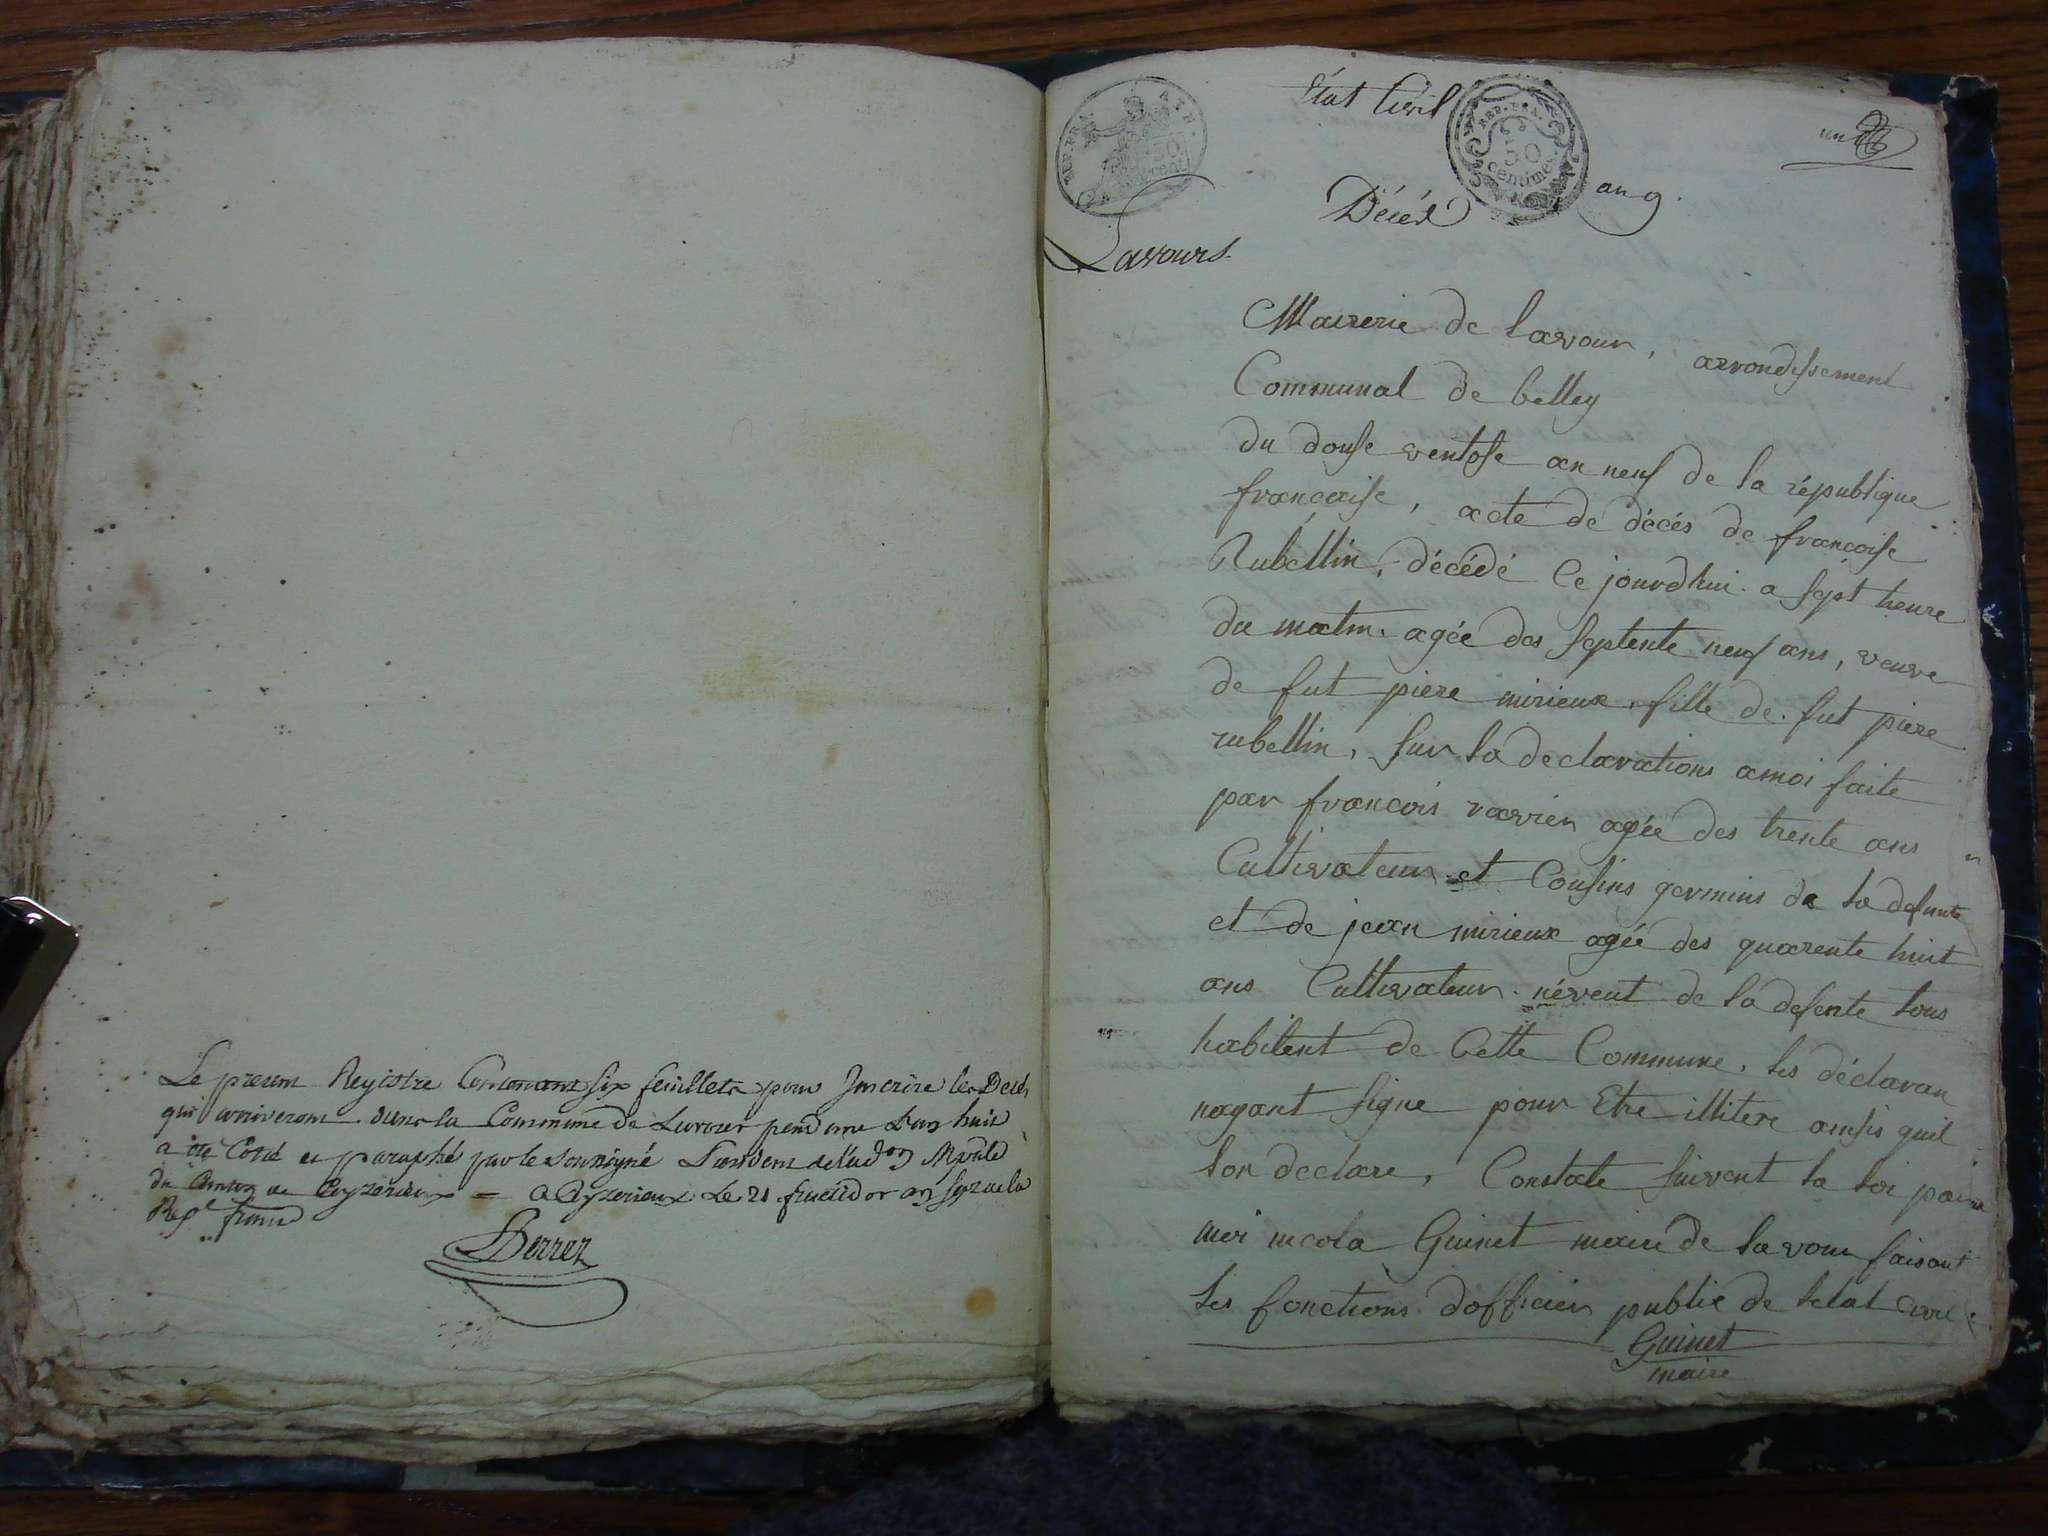 Le present Registre Contenant six feuillets pour Inscrire les Decés
qui arriveront dans la Commune de Lavours pendant L'an huit
a été Coté et paraphé par le soussigné President de l'adon Mpale
du Canton de Ceyzerieux = a Ceyzerieux Le 21 fructidor an sept de la
Repe franse
Etat Civil
REP. FRA.
50
centimes
un
Décés
an 9.
Lavours
Mairerie de lavour, arrondissement
Communal de belley
du douse ventose an neuf de la république
françoise, acte de décés de françoise
Rubellin, décédé Ce jourdhui a sept heure
du matin. agée des septente neuf ans, veuve
de fut piere mirieux, fille de fut piere
rubellin, sur la declarations a moi faite
par françois ravier agée des trente ans
Cultivateur et Cousins germins de la defunte
et de jean mirieux agée des quarente huit
ans Cultivateur. néveut de la defente tous
habitent de Cette Commune, les déclaran
nayant signe pour Etre illitere ainsis quil
lon declare, Constate suivent la loi par
moi nicola Guinet maire de lavour faisant
les fonctions dofficier public de letat civil
Guinet
maire